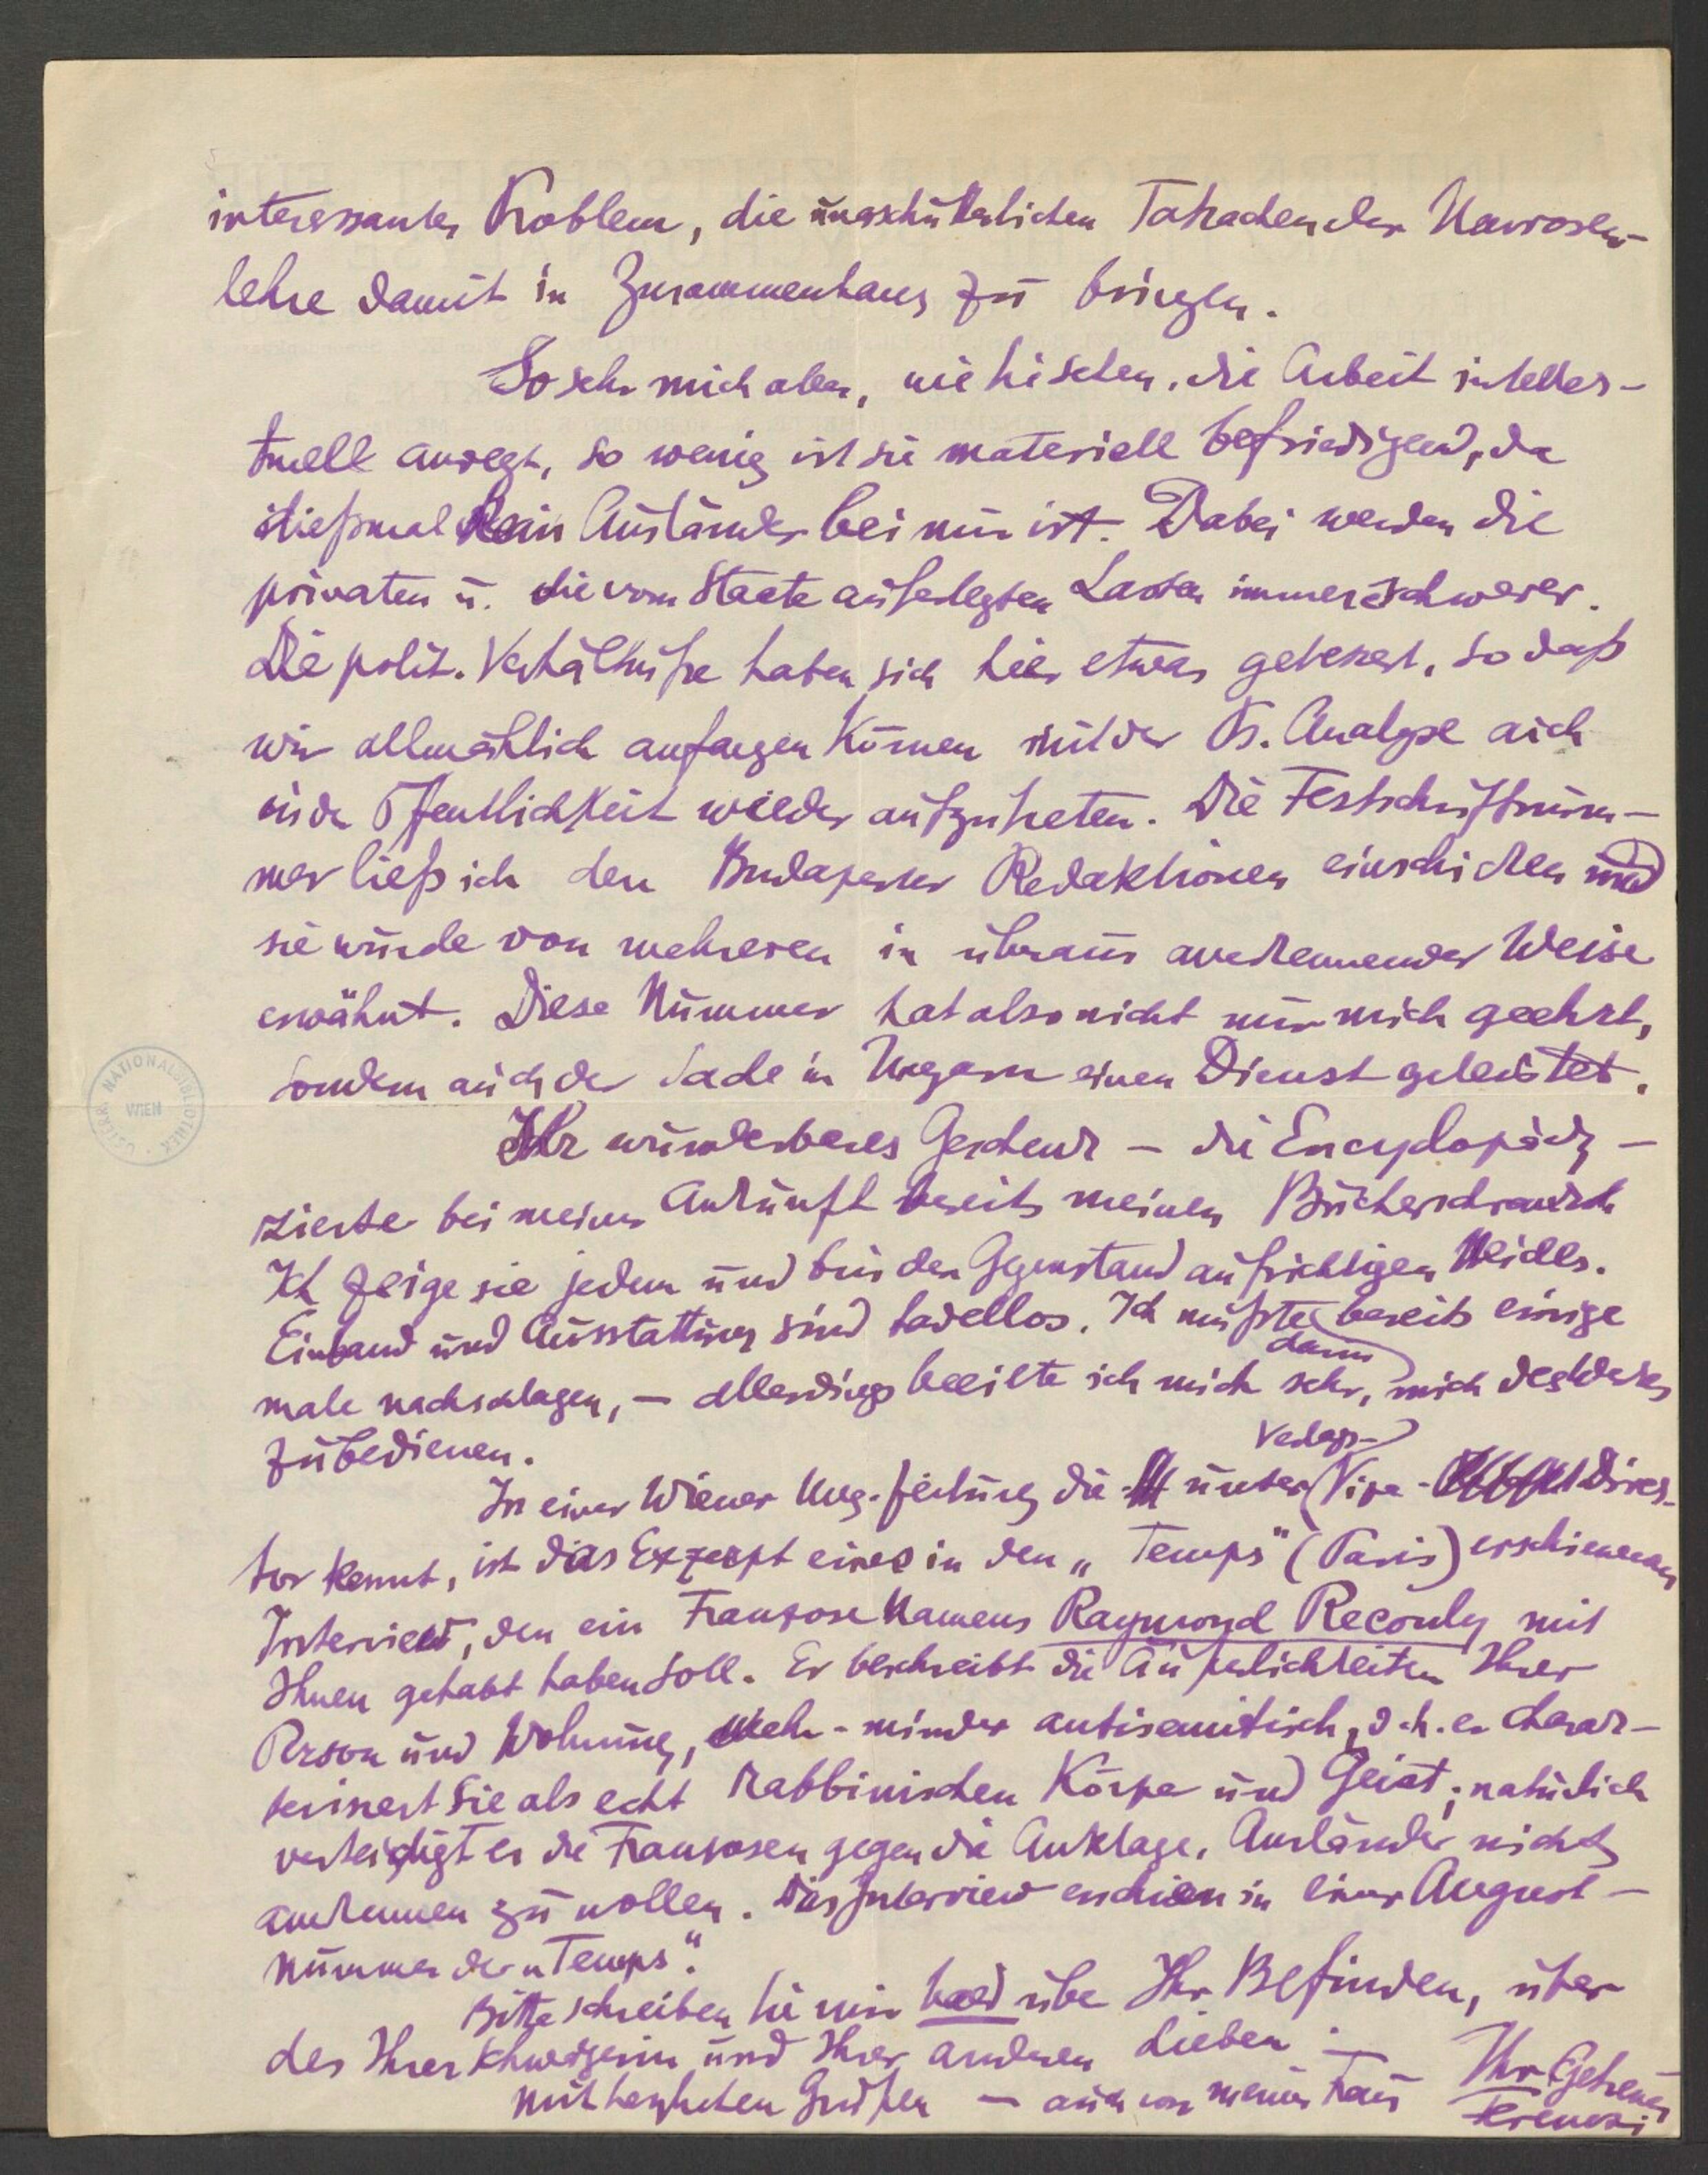 interessantes Problem, die unerschütterlichen Tatsachen der Neurosen-
lehre damit in Zusammenhang zu bringen.
So sehr mich aber, wie Sie sehen, die Arbeit intellek-
tuell anregt, so wenig ist sie materiell befriedigend, da
diesmal kein Ausländer bei mir ist. Dabei werden die
privaten u. die vom Staate auferlegten Lasten immer schwerer.
Die polit. Verhältnisse haben sich hier etwas gebessert, so daß
wir allmählich anfangen können mit der Ps. Analyse auch
in der Öffentlichkeit wieder aufzutreten. Die Festschriftnum-
mer ließ ich den Budapester Redaktionen einschicken und
sie wurde von mehreren in überaus anerkennender Weise
erwähnt. Diese Nummer hat also nicht nur mich geehrt,
sondern auch der Sache in Ungarn einen Dienst geleistet.
Ihr wunderbares Geschenk – die Encyclopädie –
zierte bei meiner Ankunft bereits meinen Bücherschrank
Ich zeige sie jedem und bin der Gegenstand aufrichtigen Neides.
Einband und Ausstattung sind tadellos. Ich mußte bereits einige
male nachschlagen, – allerdings beeilte ich mich dann sehr, mich des Werkes
zu bedienen.
In einer Wiener Ung. Zeitung die unser Verlags-Vize-Direk-
tor kennt, ist das Exzerpt eines in den „Temps" (Paris) erschienenen
Interview, den ein Franzose Namens Raymond Recouly mit
Ihnen gehabt haben soll. Er beschreibt die Äußerlichkeiten Ihrer
Person und Wohnung, mehr-minder antisemitisch, d.h. er charak-
terisiert Sie als echt rabbinischen Körper und Geist; natürlich
verteidigt er die Franzosen gegen die Anklage, Ausländer nicht
anerkennen zu wollen. Das Interview erschien in einer August-
nummer der „Temps".
Bitte schreiben Sie mir bald über Ihr Befinden, über
das Ihrer Schwägerin und Ihrer anderen Lieben.
Mit herzlichen Grüßen – auch von meiner Frau Ihr Getreuer
Ferenczi
ÖSTERR. NATIONALBIBLIOTHEK
WIEN